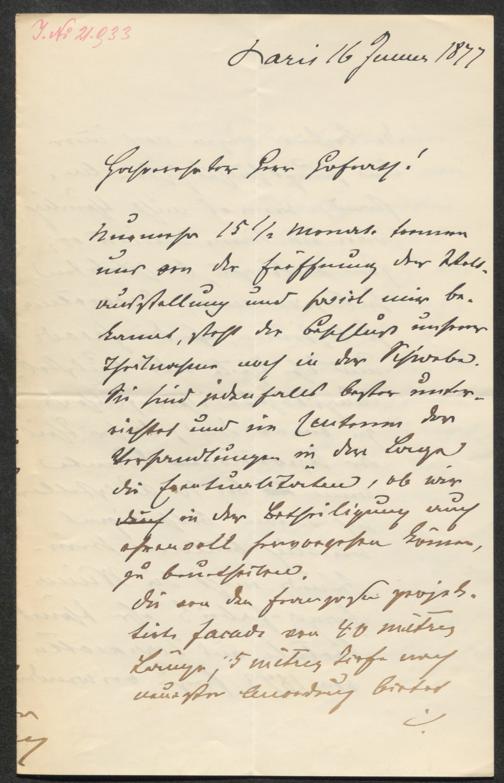 J. No 21.933
Paris 16 Jänner 1877
Hochverehrter Herr Hofrath!
Nunmehr 15 1/2 Monate trennen
uns von der Eröffnung der Welt-
ausstellung und soviel mir be-
kannt, steht der Beschluss unserer
Theilnahme noch in der Schwebe.
Sie sind jedenfalls besser unter-
richtet und im Centrum der
Verhandlungen in der Lage
die Eventualitäten, ob wir
in der Betheiligung auch
ehrenvoll hervorgehen können,
zu beurtheilen.
Die von den Franzosen projek-
tirte Facade von 40 mètres
Länge, 5 mètres tiefe nach
neuester Anordnung bietet